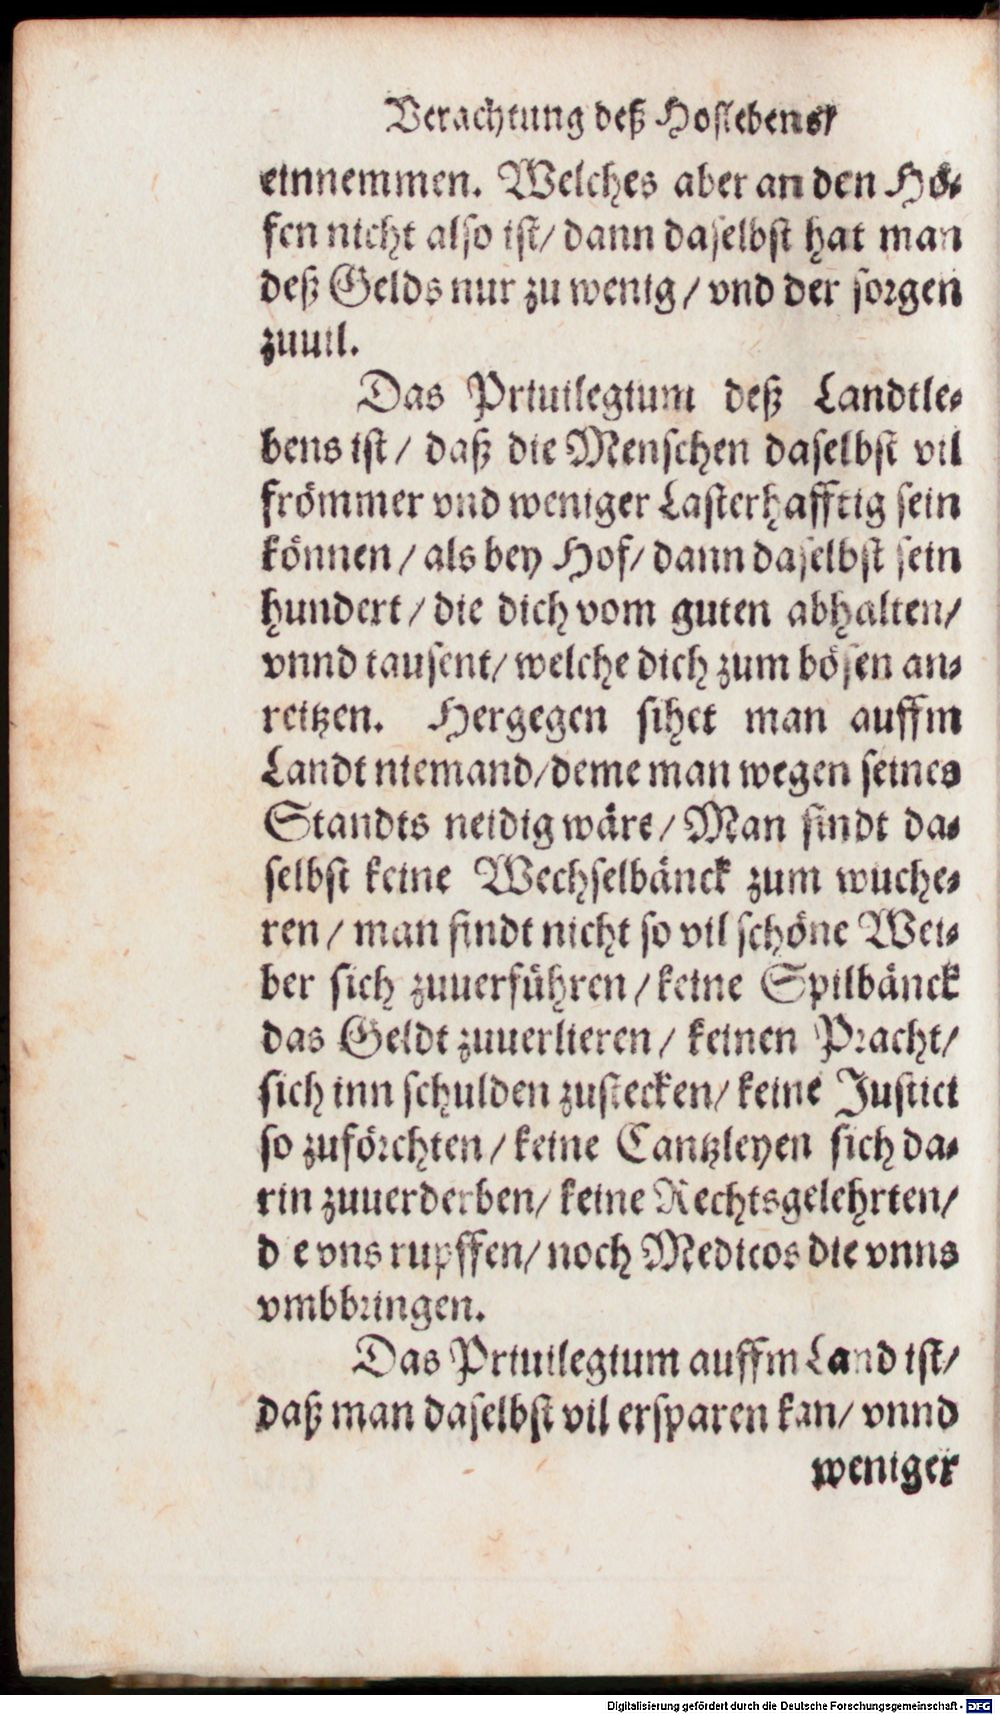 Verachtung deß Hoflebens/
einnemmen. Welches aber an den Hö-
fen nicht also ist/ dann daselbst hat man
deß Gelds nur zu wenig/ vnd der sorgen
zuuil.
Das Priuilegium deß Landtle-
bens ist/ daß die Menschen daselbst vil
frömmer vnd weniger Lasterhafftig sein
können/ als bey Hof/ dann daselbst sein
hundert/ die dich vom guten abhalten/
vnnd tausent/ welche dich zum bösen an-
reitzen. Hergegen sihet man auffm
Landt niemand/ deme man wegen seines
Standts neidig wäre/ Man findt da-
selbst keine Wechselbänck zum wuche-
ren/ man findt nicht so vil schöne Wei-
ber sich zuuerführen/ keine Spilbänck
das Geldt zuuerlieren/ keinen Pracht/
sich inn schulden zustecken/ keine Justici
so zuförchten/ keine Cantzleyen sich da-
rin zuuerderben/ keine Rechtsgelehrten/
d e vns rupffen/ noch Medicos die vnns
vmbbringen.
Das Priuilegium auffm Land ist/
daß man daselbst vil ersparen kan/ vnnd
weniger
Digitalisierung gefördert durch die Deutsche Forschungsgemeinschaft - DFG